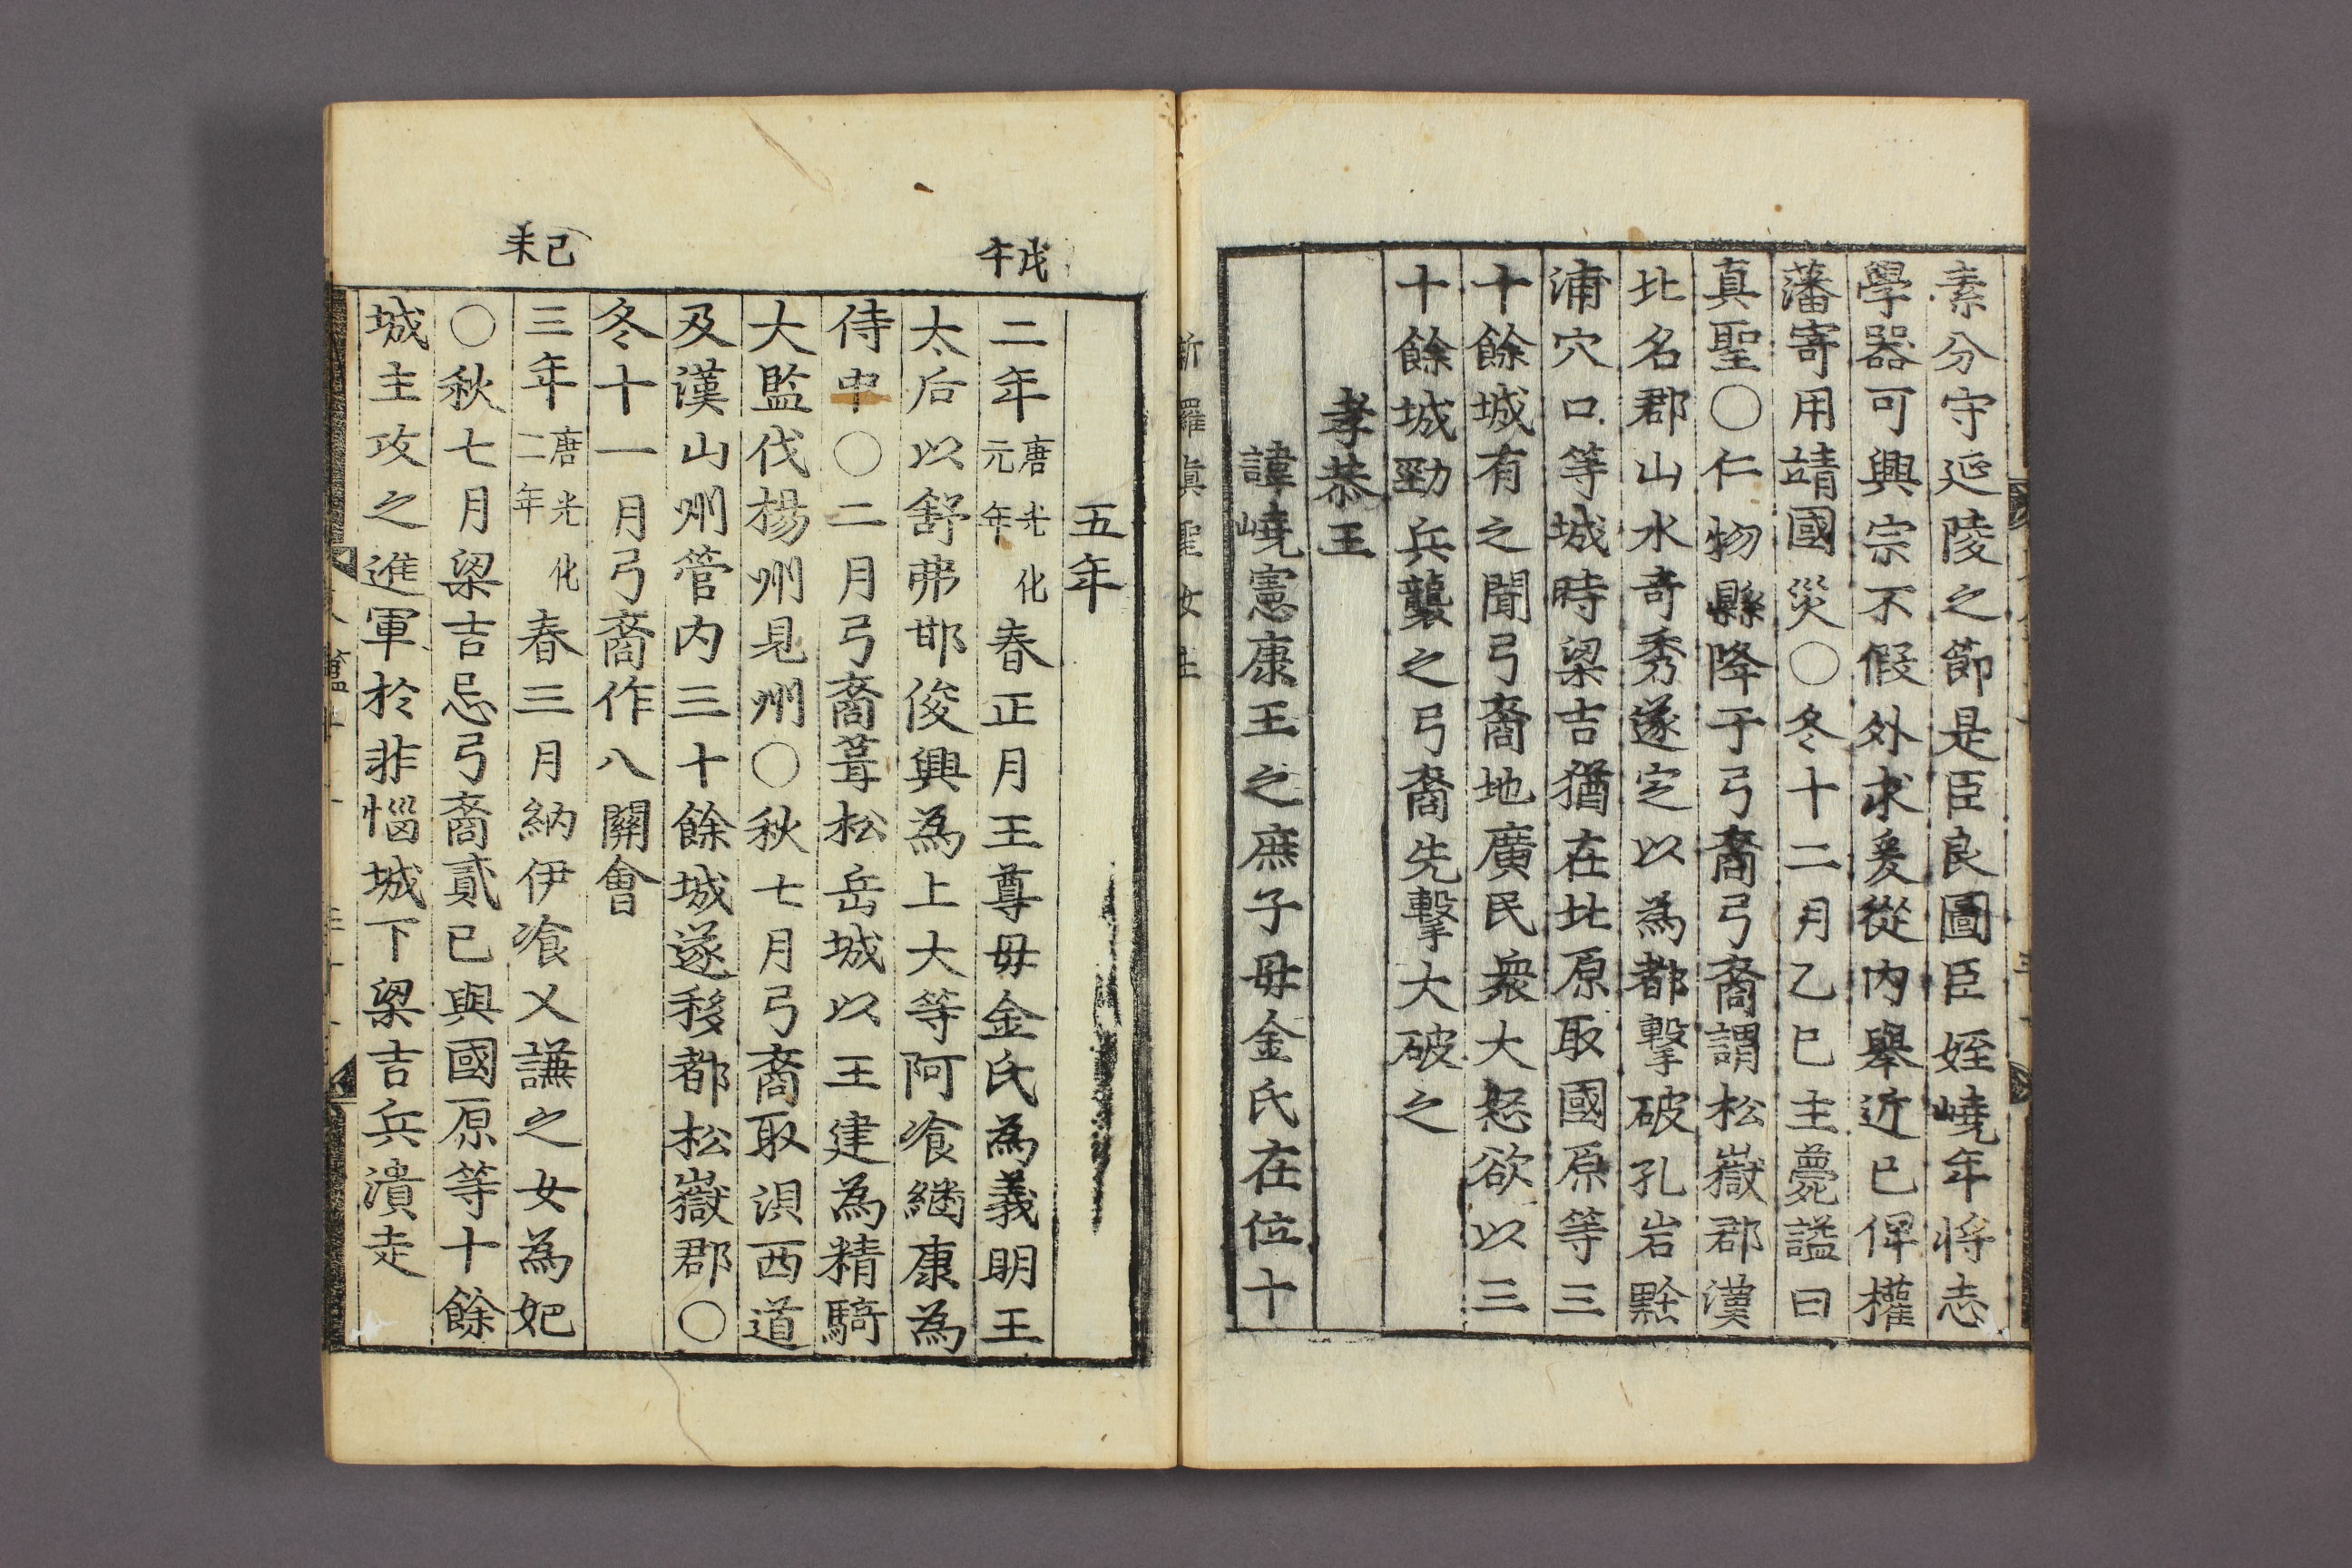 素分守延陵之節是臣良圖臣姪嶢年將志
學器可興宗不假外求爰從內舉近已俾權
藩寄用靖國災〇冬十二月乙巳主薨謚曰
真聖〇仁物縣降于弓裔弓裔謂松嶽郡漢
北名郡山水奇秀遂定以為都擊破孔岩黔
浦穴口等城時梁吉猶在北原取國原等三
十餘城有之聞弓裔地廣民衆大怒欲以三
十餘城勁兵襲之弓裔先擊大破之
孝恭王
諱嶢憲康王之庶子母金氏在位十
新羅眞聖女主
五年
戊午
二年唐光化元年春正月王尊母金氏為義明王
太后以舒弗邯俊興為上大等阿飡継康為
侍中〇二月弓裔葺松岳城以王建為精騎
大監伐楊州見州〇秋七月弓裔取浿西道
及漢山州管内三十餘城遂移都松嶽郡〇
冬十一月弓裔作八關會
己未
三年唐光化二年春三月納伊飡乂謙之女為妃
〇秋七月梁吉忌弓裔貳已與國原等十餘
城主攻之進軍於非惱城下梁吉兵潰走